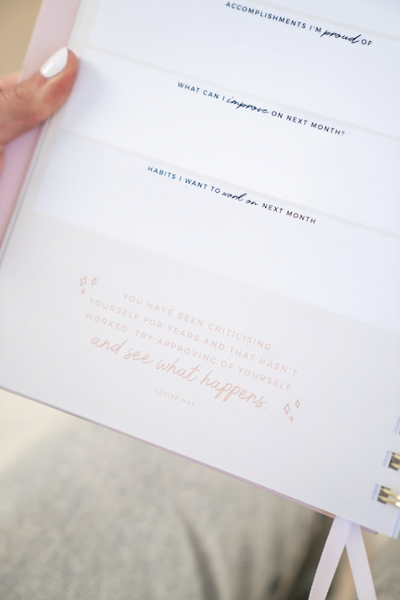 ACCOMPLISHMENTS I'M proud OF
WHAT CAN I improve ON NEXT MONTH?
HABITS I WANT TO work on NEXT MONTH
YOU HAVE BEEN CRITICISING
YOURSELF FOR YEARS AND THAT HASN'T
WORKED. TRY APPROVING OF YOURSELF
and see what happens.
LOUISE HAY